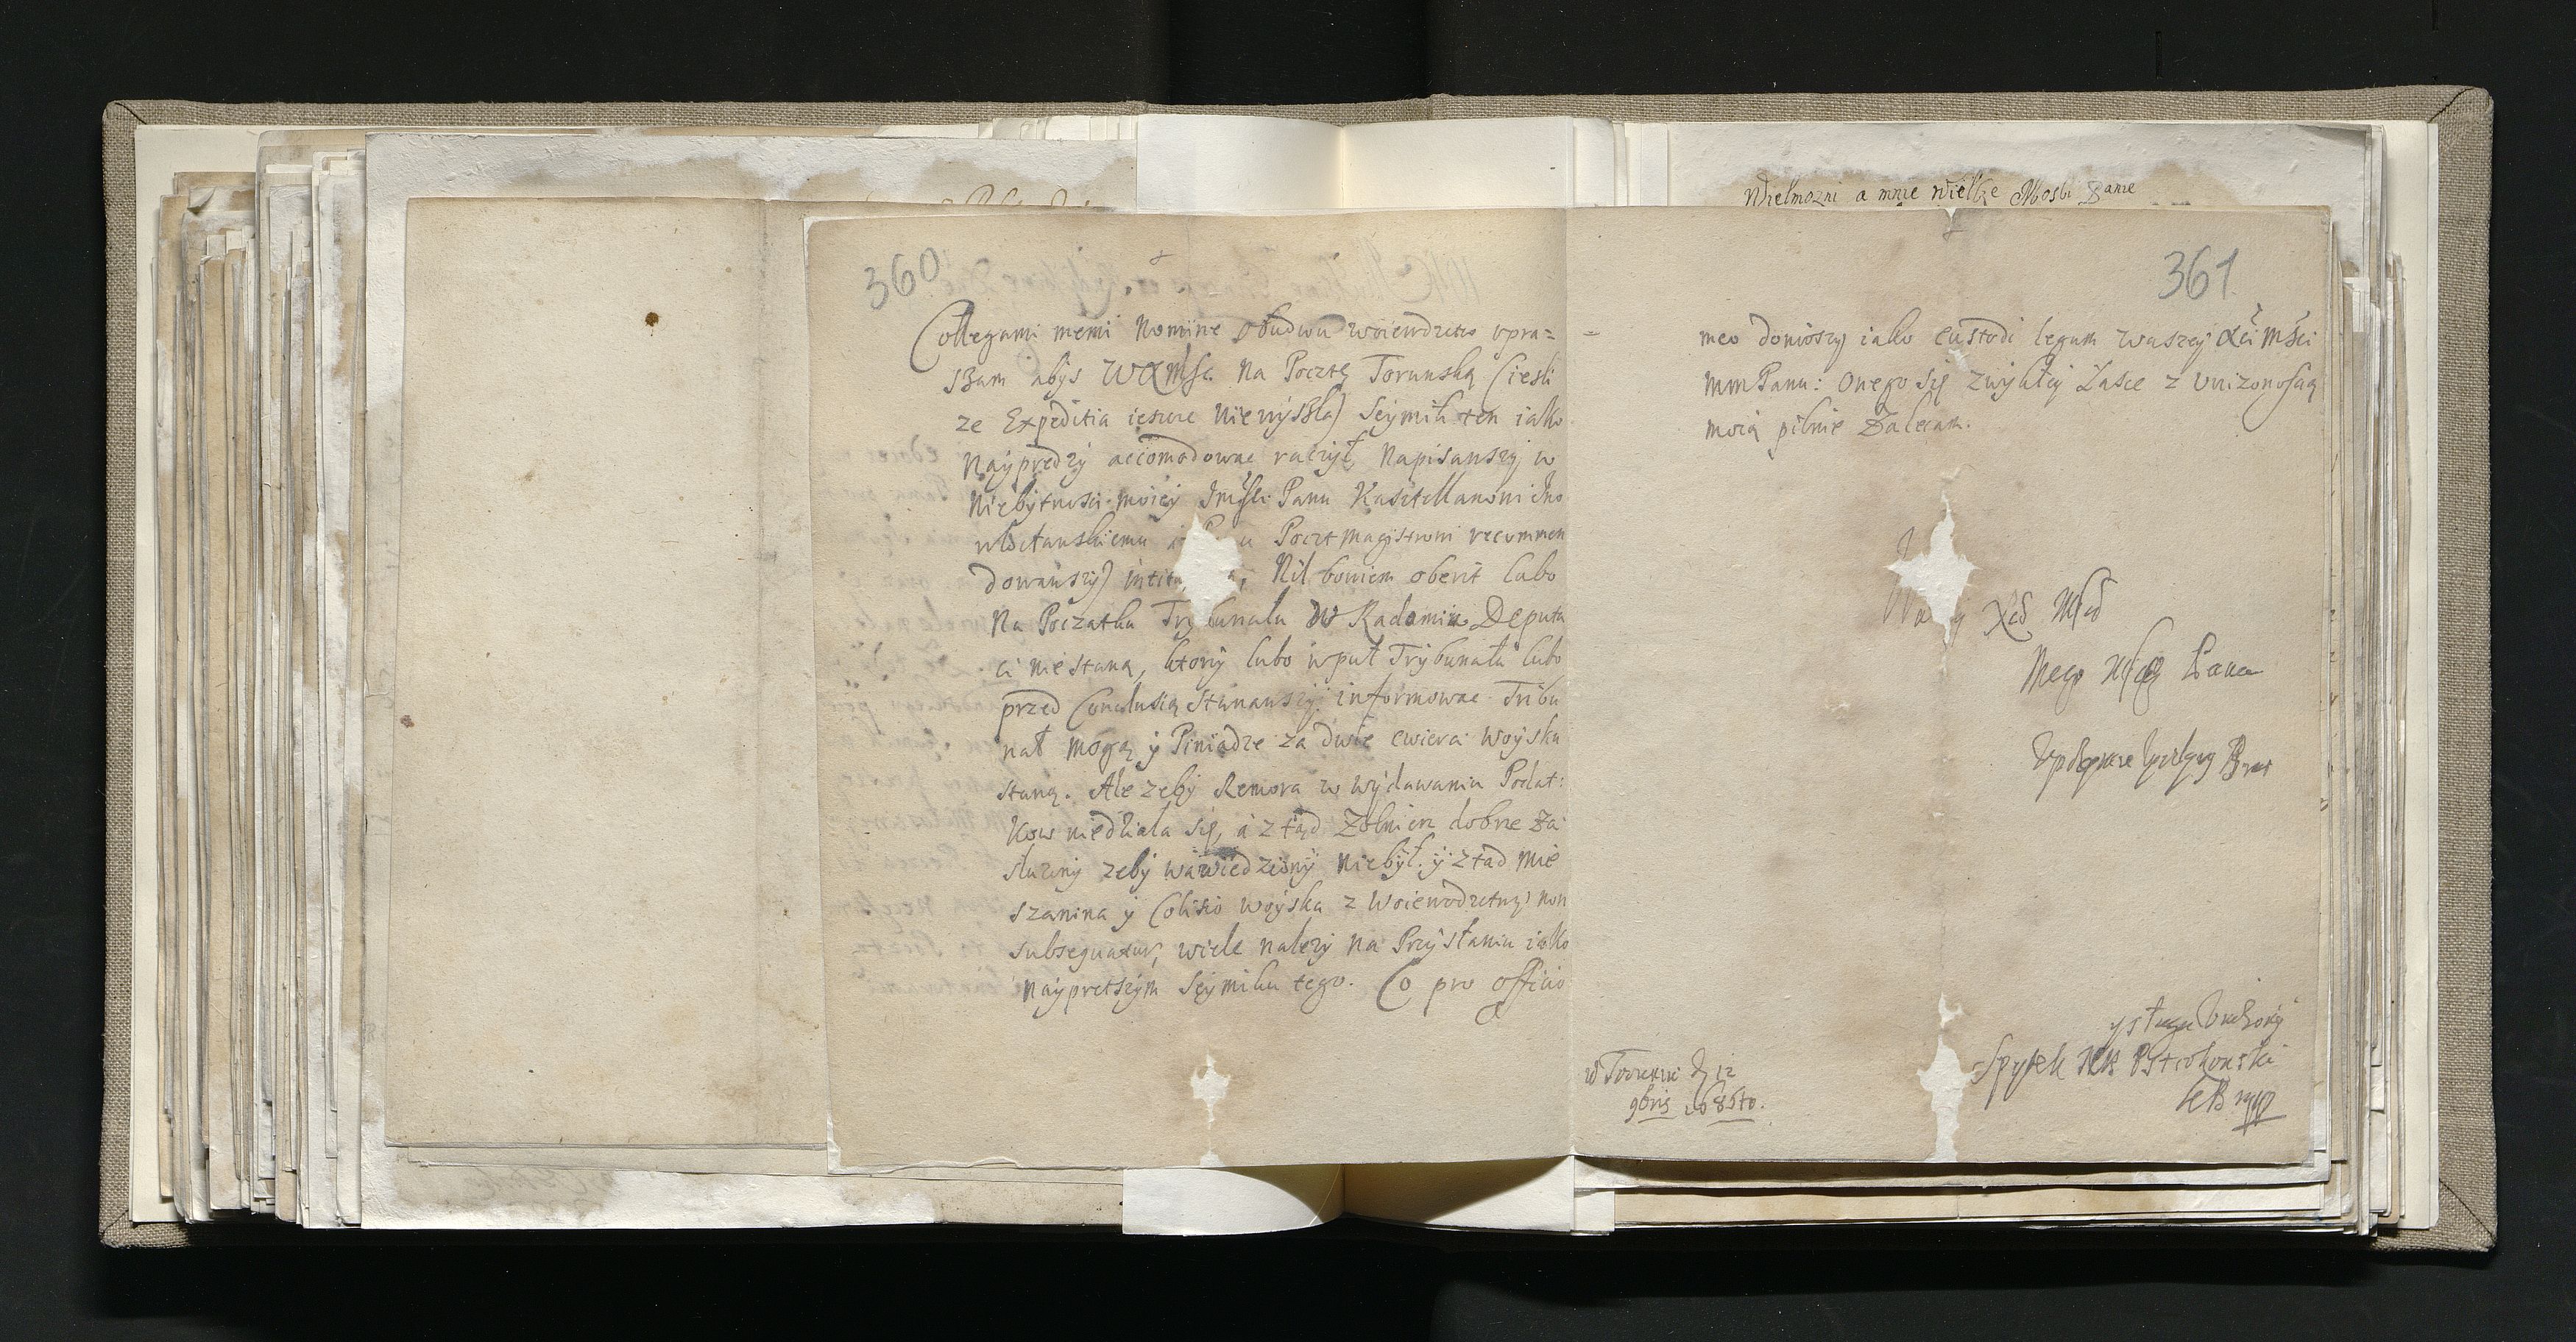 360
Collegami memi Nomine obudwu woiewdztw vpra=
szam abys WXMsc Na Pocztę Torunską (iesli
ze Expeditia ieszcze Niewyszła) Seymik ten iako
Nayprędzy accomodowac raczył, Napisawszy w
Niebytnosci moiey Jmsci Panu Kasztellanowi Ino
wlocławskiemu Poczt magistrowi recommen
dowawszy) Nil bowiem oberit lubo
Na Początku Trybunału W Radomiu Deputa
ci niestaną, ktory lubo wpuł Trybunału lubo
przed Conclusią stanąwszy informowac Tribu
nał mogą y Piniądze za dwie cwierci woysku
staną. Ale zeby Remora w wydawaniu Podat:
kow niedziała się, a ztąd Zołnierz dobrze Za
słuzony zeby wawiedziony Niebył. y ztad mie
szanina y Colisio woyska z Woiewodztwy non
subsequatur, wiele nalezy na Przystaniu iako
Nayprętszym Seymiku tego. Co pro officio
Wielmozni a mnie wielke Mosci Panie
361
meo doniozszy iako custodi legum waszey Xci Msci
mm Panu: Onego się zwykłey Łasce z Vnizonoscią
moią pilnie Zalecam.
Xcei Msci
Mego Msceg Pana
Brat
y sługa Vnizony
Spytek Pstrokonski
w Toruniu D 12
9bris 1686to.